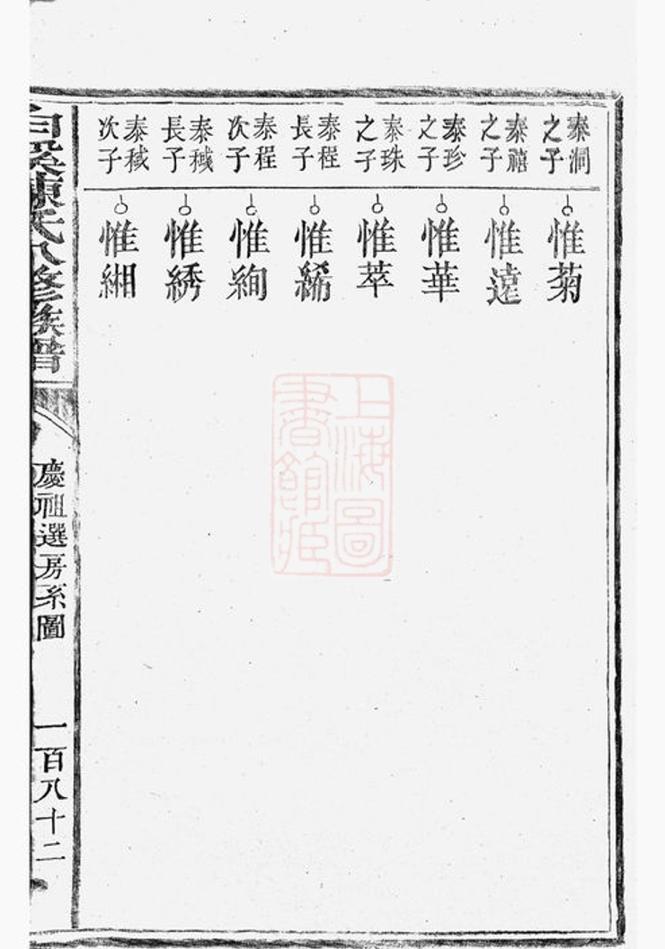 泰洞之子
惟菊
泰禧之子
惟遠
泰珍之子
惟華
泰珠之子
惟萃
泰程長子
惟絺
泰程次子
惟絢
泰稢長子
惟綉
泰稢次子
惟緗
陳氏八修族譜
慶祖選房系圖
一百八十二
上海圖書館藏